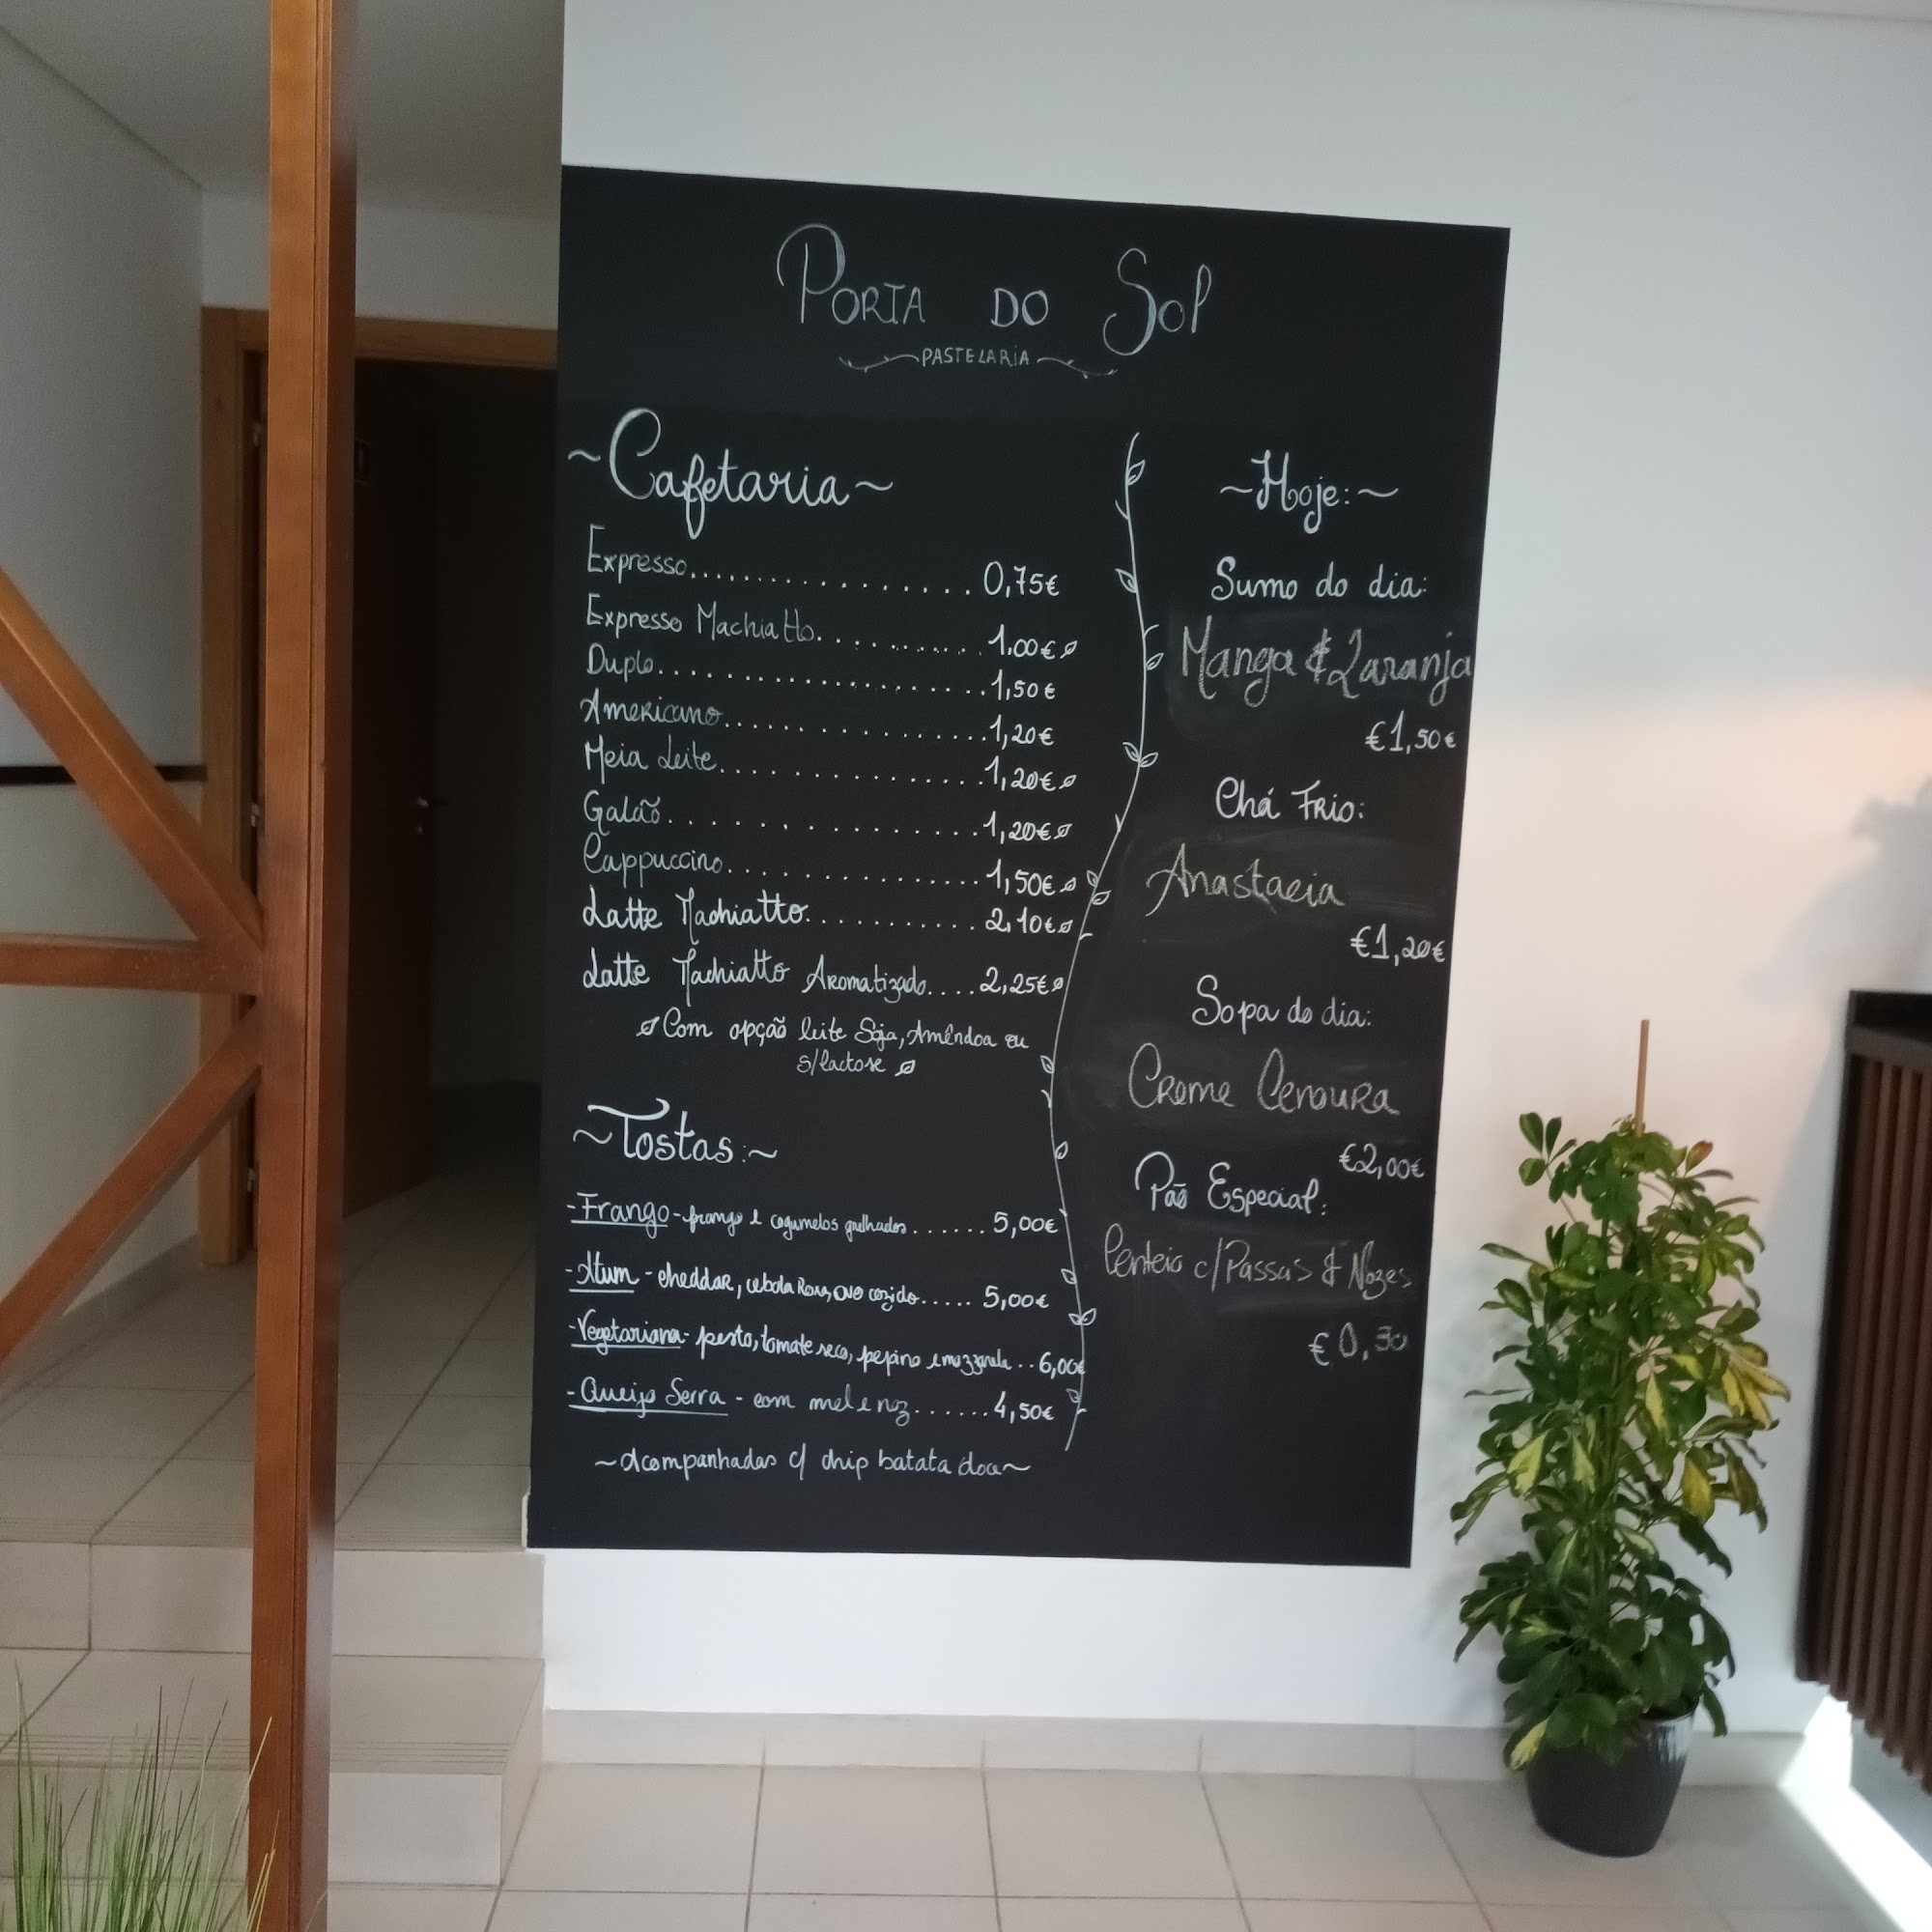 PORTA DO Sol
PASTELARIA
~Cafetaria~
Expresso................. 0,75€
Expresso Machiatto........... 1.00€
Duplo................... 1,50€
Americano............... 1,20€
Meia Leite............... 1,20€
Galão................. 1,20€
Cappuccino............... 1,50€
Latte Machiatto.......... 2,10€
Latte Machiatto Aromatizado.... 2,25€
Com opção leite Soja, Amêndoa ou
s/lactose
~Tostas:~
-Frango-frango e cogumelos grelhados....... 5,00€
-Atum - cheddar, cebola Roxa, ovo cozido..... 5,00€
-Vegetariana- pesto, tomate seco, pepino e mozzarela ..6,00€
-Queijo Serra - com mel e noz......4,50€
~Acompanhadas c/ chip batata doce~
~Hoje:~
Sumo do dia:
Manga & Laranja
€1,50€
Chá Frio:
Anastacia
€1,20€
Sopa do dia:
Creme Cenoura
€2,00€
Pão Especial:
Centeio c/Passas & Nozes
€0,30